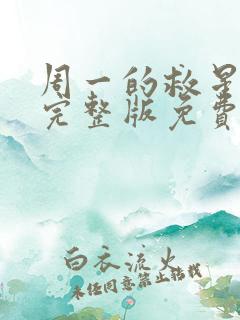 周一的救星
完整版免費
白衣流火
未经同意禁止转载